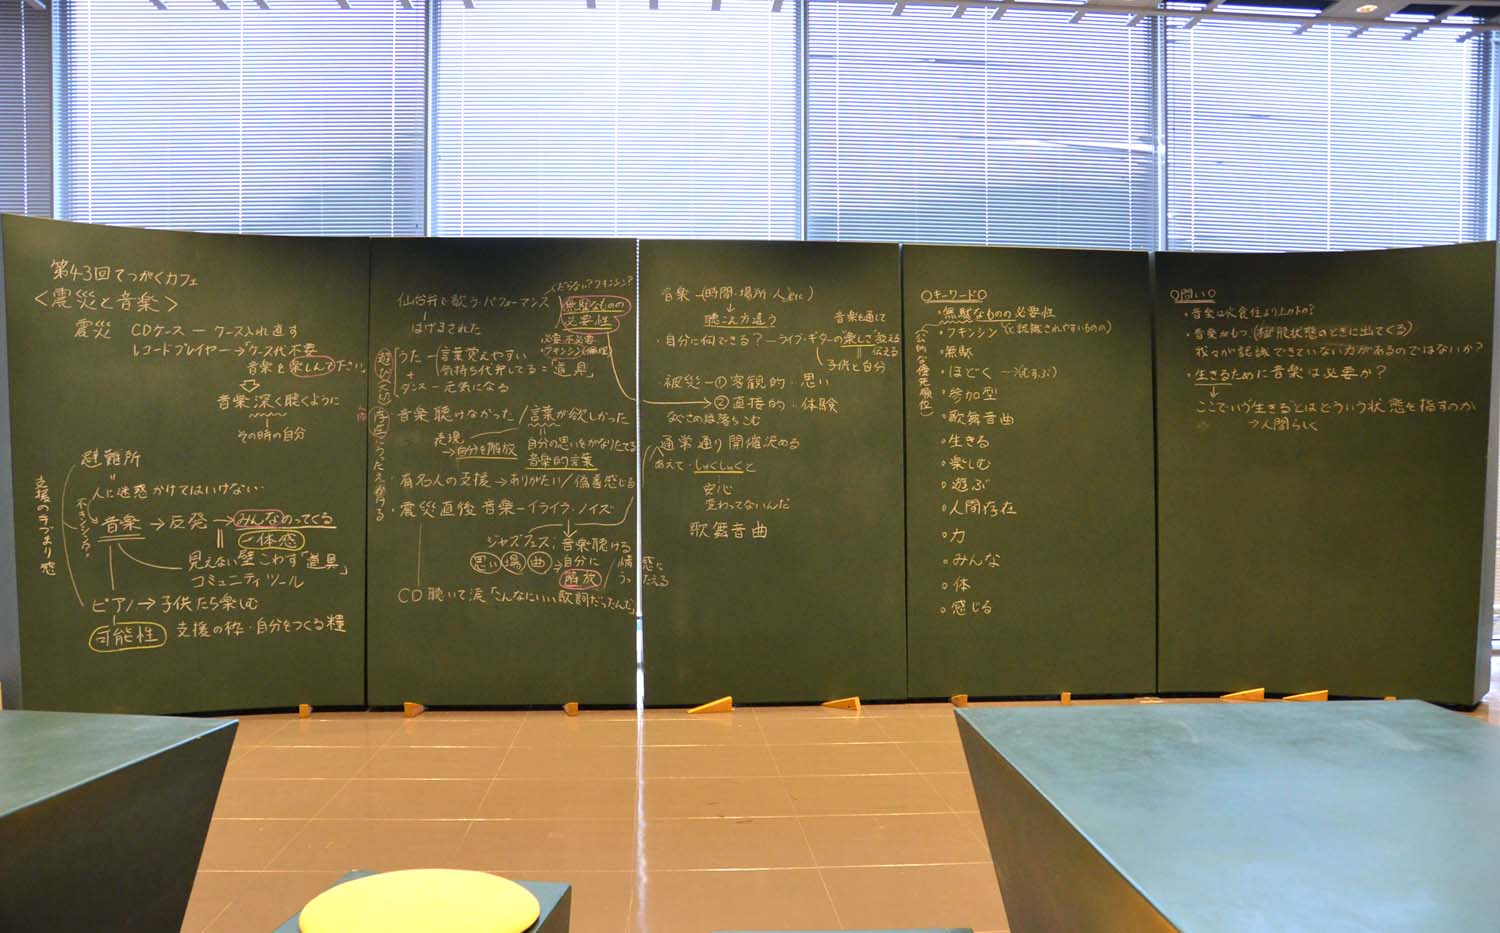 第43回てつがくカフェ
＜震災と音楽＞
震災 CDケース ー ケース入れ直す
レコードプレイヤー→「ケース代不要
音楽を楽しんで下さい」
音楽 深く聴くように
その時の自分
避難所
人に迷惑かけてはいけない
支援のラブまり感
音楽→反発→みんなのってくる
一体感
見えない壁こわす「道具」
コミュニティツール
ピアノ→子供たち楽しむ
可能性 支援の枠・自分をつくる糧
仙台弁で歌う・パフォーマンス
はげまされた
人だらない?フキンシン?
無駄なものの
必要性
必要不必要
遊び(大切)
うた ー 言葉覚えやすい
気持ち代弁してる=「道具」
+
ダンス ー 元気になる
存在にうったえかける
・音楽 聴けなかった/言葉が欲しかった
表現
→自分を解放
自分の思いをがなりたてる
音楽的言葉
・有名人の支援→ありがたい/偽善感じる
・震災直後 音楽ーイライラ・ノイズ
ジャズフェス;音楽聴ける
思い 場 曲→自分に
解放
情感に
うったえる
CD 聴いて涙「こんなにいい歌詞だったんだ」
音楽ー(時間・場所・人)etc)
聴こえ方違う
音楽を通して
・自分に何できる?ーライブ・ギターの楽しさ教える
伝える
子供と自分
・被災ー①客観的・思い
②直接的・体験
なぐさめ落ちこむ
・通常通り開催決める
あえて・しゅくしゅくと
安心
変わってないんだ
歌舞音曲
○キーワード○
・無駄なものの必要性
公的な優先順位
・フキンシン(に認識されやすいものの)
・無駄
・ほどく →(むすぶ)
・参加型
・歌舞音曲
○生きる
○楽しむ
○遊ぶ
○人間存在
○力
○みんな
○体
○感じる
○問い○
・音楽は衣食住より上か下か?
・音楽がもつ(極限状態のときに出てくる)
我々が認識できていない力があるのではないか?
・生きるために音楽は必要か?
ここでいう「生きる」とはどういう状態を指すのか
→人間らしく